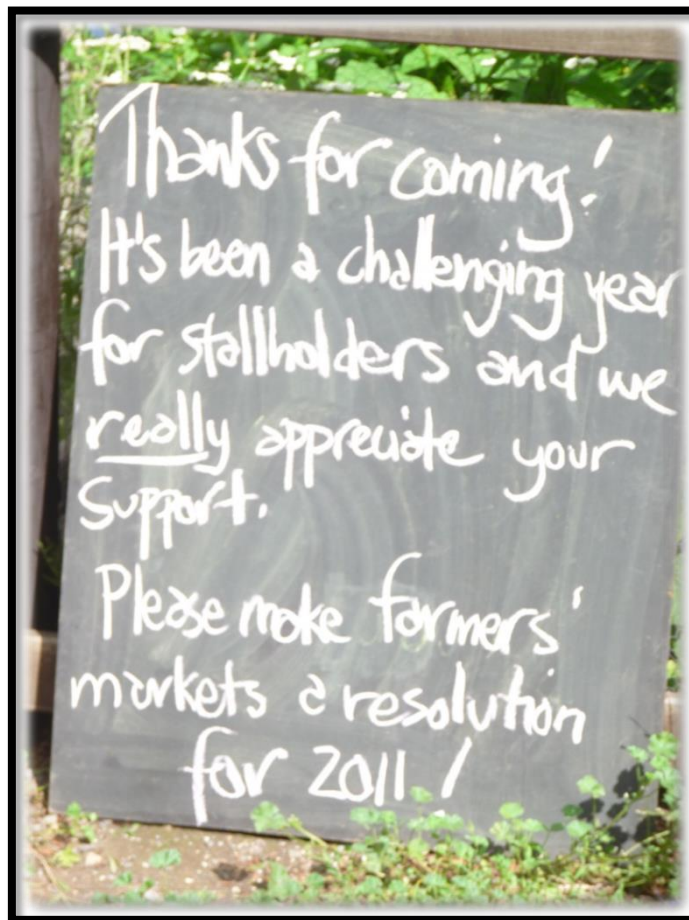 Thanks for coming!
It's been a challenging year
for stallholders and we
really appreciate your
support.
Please make farmers'
markets a resolution
for 2011!